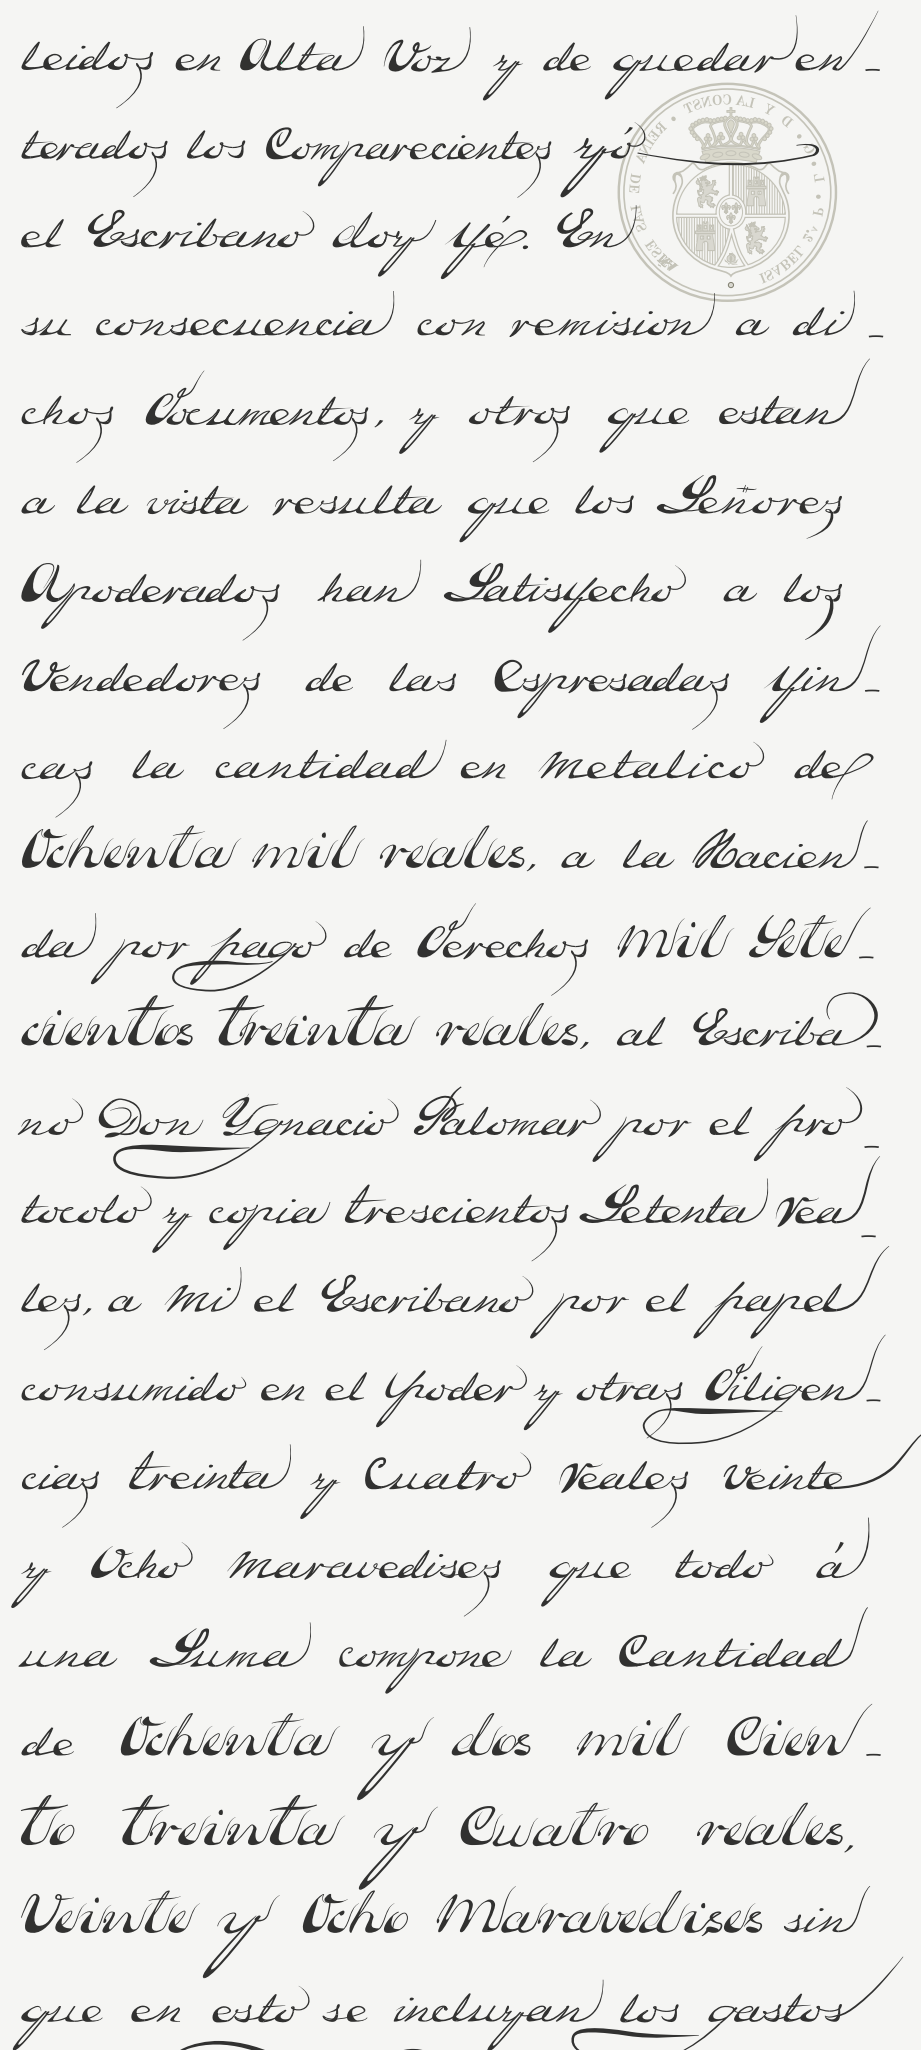 leidos en Alta Voz y de quedar en-
terados los Comparecientes yó
el Escribano doy fé. En
su consecuencia con remision a di-
chos Documentos, y otros que estan
a la vista resulta que los Señores
Apoderados han Satisfecho a los
Vendedores de las Espresadas fin-
cas la cantidad en Metalico de
Ochenta mil reales, a la Hacien-
da por pago de Derechos Mil Sete-
cientos treinta reales, al Escriba-
no Don Ygnacio Palomar por el pro-
tocolo y copia trescientos Setenta rea-
les, a Mi el Escribano por el papel
consumido en el poder y otras Diligen-
cias treinta y Cuatro reales veinte
y Ocho Maravedises que todo á
una Suma compone la Cantidad
de Ochenta y dos mil Cien-
to treinta y Cuatro reales,
Veinte y Ocho Maravedises sin
que en esto se incluyan los gastos